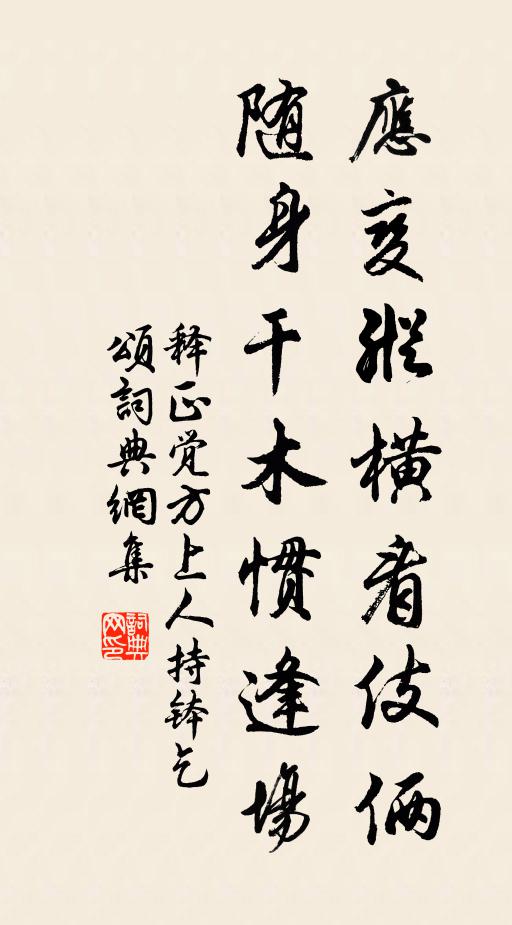 應變縱横看伎俩
随身干木慣逢場
释正觉方上人持钵乞
頌詞典網集
詞典网印